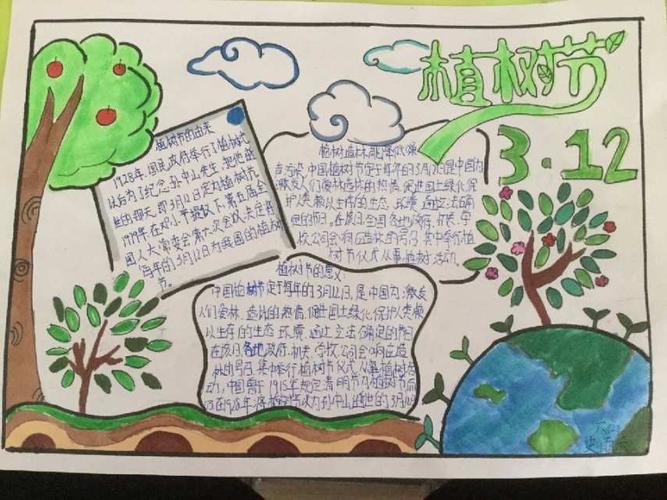 植树节
3.12
植树节的由来
1928年,国民政府举行了植树式
以后为了纪念孙中山先生,把他逝
世的那天,即3月12日定为植树节
1979年,在邓小平提议下,第五届全
国人大常委会第六次会议决定将
每年的3月12日为我国的植树
节。
植树造林
中国植树节定于每年的3月12日是中国为
激发人们爱林造林的热情,促进国土绿化,保
护人类赖以生存的生态环境,通过立法确
定的节日。在该日全国各地政府、机关、学
校公司会响应造林的号召,集中举行植
树节仪式从事植树活动
植树节的意义:
中国植树节定于每年的3月12日,是中国为激发
人们爱林、造林的热情,促进国土绿化,保护人类赖
以生存的生态环境,通过立法确定的节日
在该日各地政府、机关、学校公司会响应造
林的号召,集中举行植树节仪式,从事植树活
动,中国曾于1915年规定清明节为植树节而
后在1928年将植树节改为孙中山逝世的3月12日